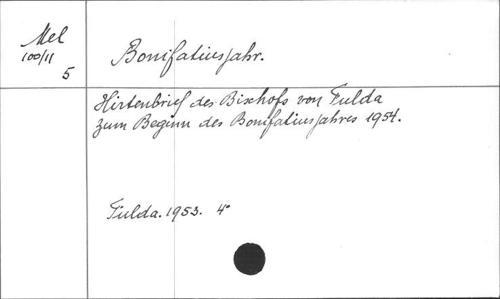 Mel
100/11
5
Bonifatiusjahr.
Hirtenbrief des Bischofs von Fulda
zum Beginn des Bonifatiusjahres 1954.
Fulda. 1953. 4°